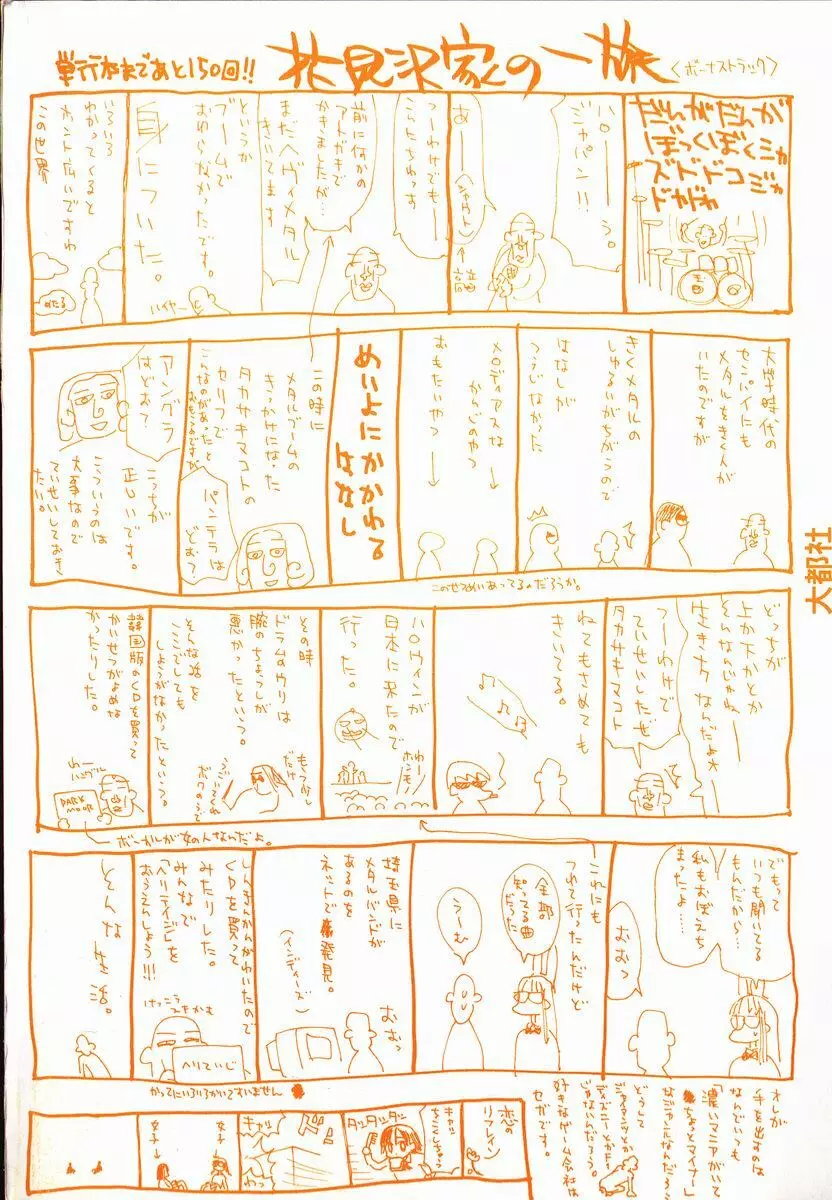 単行本まであと150回!!
花見沢家の一族
〈ボーナストラック〉
だんがだんが
ぼっくぼくミャ
ズドドコジャ
ドガドガ
ハローーう。
ジャパン!!
あーーー
(シャウト)
つーわけでもー
こんちわっす
前に何かの
アトガキで
かきましたが…
まだヘヴィメタル
きいてます
というか
ブームで
おわらなかったです。
身についた。
ハイヤー
いろいろ
わかってくると
ホント広いですね
この世界
めたる
大学時代の
センパイにも
メタルをきく人が
いたのですが
きくメタルの
しゅるいがちがうので
はなしが
つうじなかった
メロディアスな
かんじのやつ
おもたいやつ
このせつめいあってるんだろうか。
めいよにかかわる
はなし
この時に
メタルブームの
きっかけになった
タカサキマコトの
セリフで
こんなのがあったと
おもうのですが
パンテラは
どお?
アングラ
はどお?
こっちが
正しいです。
こういうのは
大事なので
ていせいしておき
たい。
どっちが
上か下かとか
そんなんじゃねー
生き方なんだよ
つーわけで
ていせいしたぜ
タカサキマコト
ねてもさめても
きいてる。
ハロウィンが
日本に来たので
行った。
わー
ホンモノ
その時
ドラムのウリは
腕のちょうしが
悪かったという。
もう少し
だけ
うごいてくれ
ボクのうで
そんな話を
ここでしても
しょうがなかったという。
韓国版のCDを買って
かいせつがよめな
かったりした。
わー
ハングル
DARK
MOOR
ボーカルが女の人なんだよ。
でもって
いつも聞いてる
もんだから…
私もおぼえち
まったよ……
おむっ
これにも
つれて行ったんだけど
全部
知ってる曲
だった
うーむ
埼玉県に
メタルバンドが
あるのを
ネットで発見。
(インディーズ)
おおっ
しんきんかんがわいたので
CDを買って
みたりした。
みんなで
「ヘリテイジ」を
おうえんしよう!!!
けっこう
できかも
へりていじ
かってにいろいろかいてすいません
そんな
生活。
オレが
手を出すのは
なんでいつも
「濃いマニアがいて
ちょっとマイナー」
なジャンルなんだろう
どうして
ジャンプマンガとか
ディズニーとかだ
じゃないんだろう。
好きなゲーム会社は
セガです。
恋の
リフレイン
キャッ
ちこくしちゃう
ダッダッダッ
ドン
キャッ
わっ
女子→
女子→
大都社